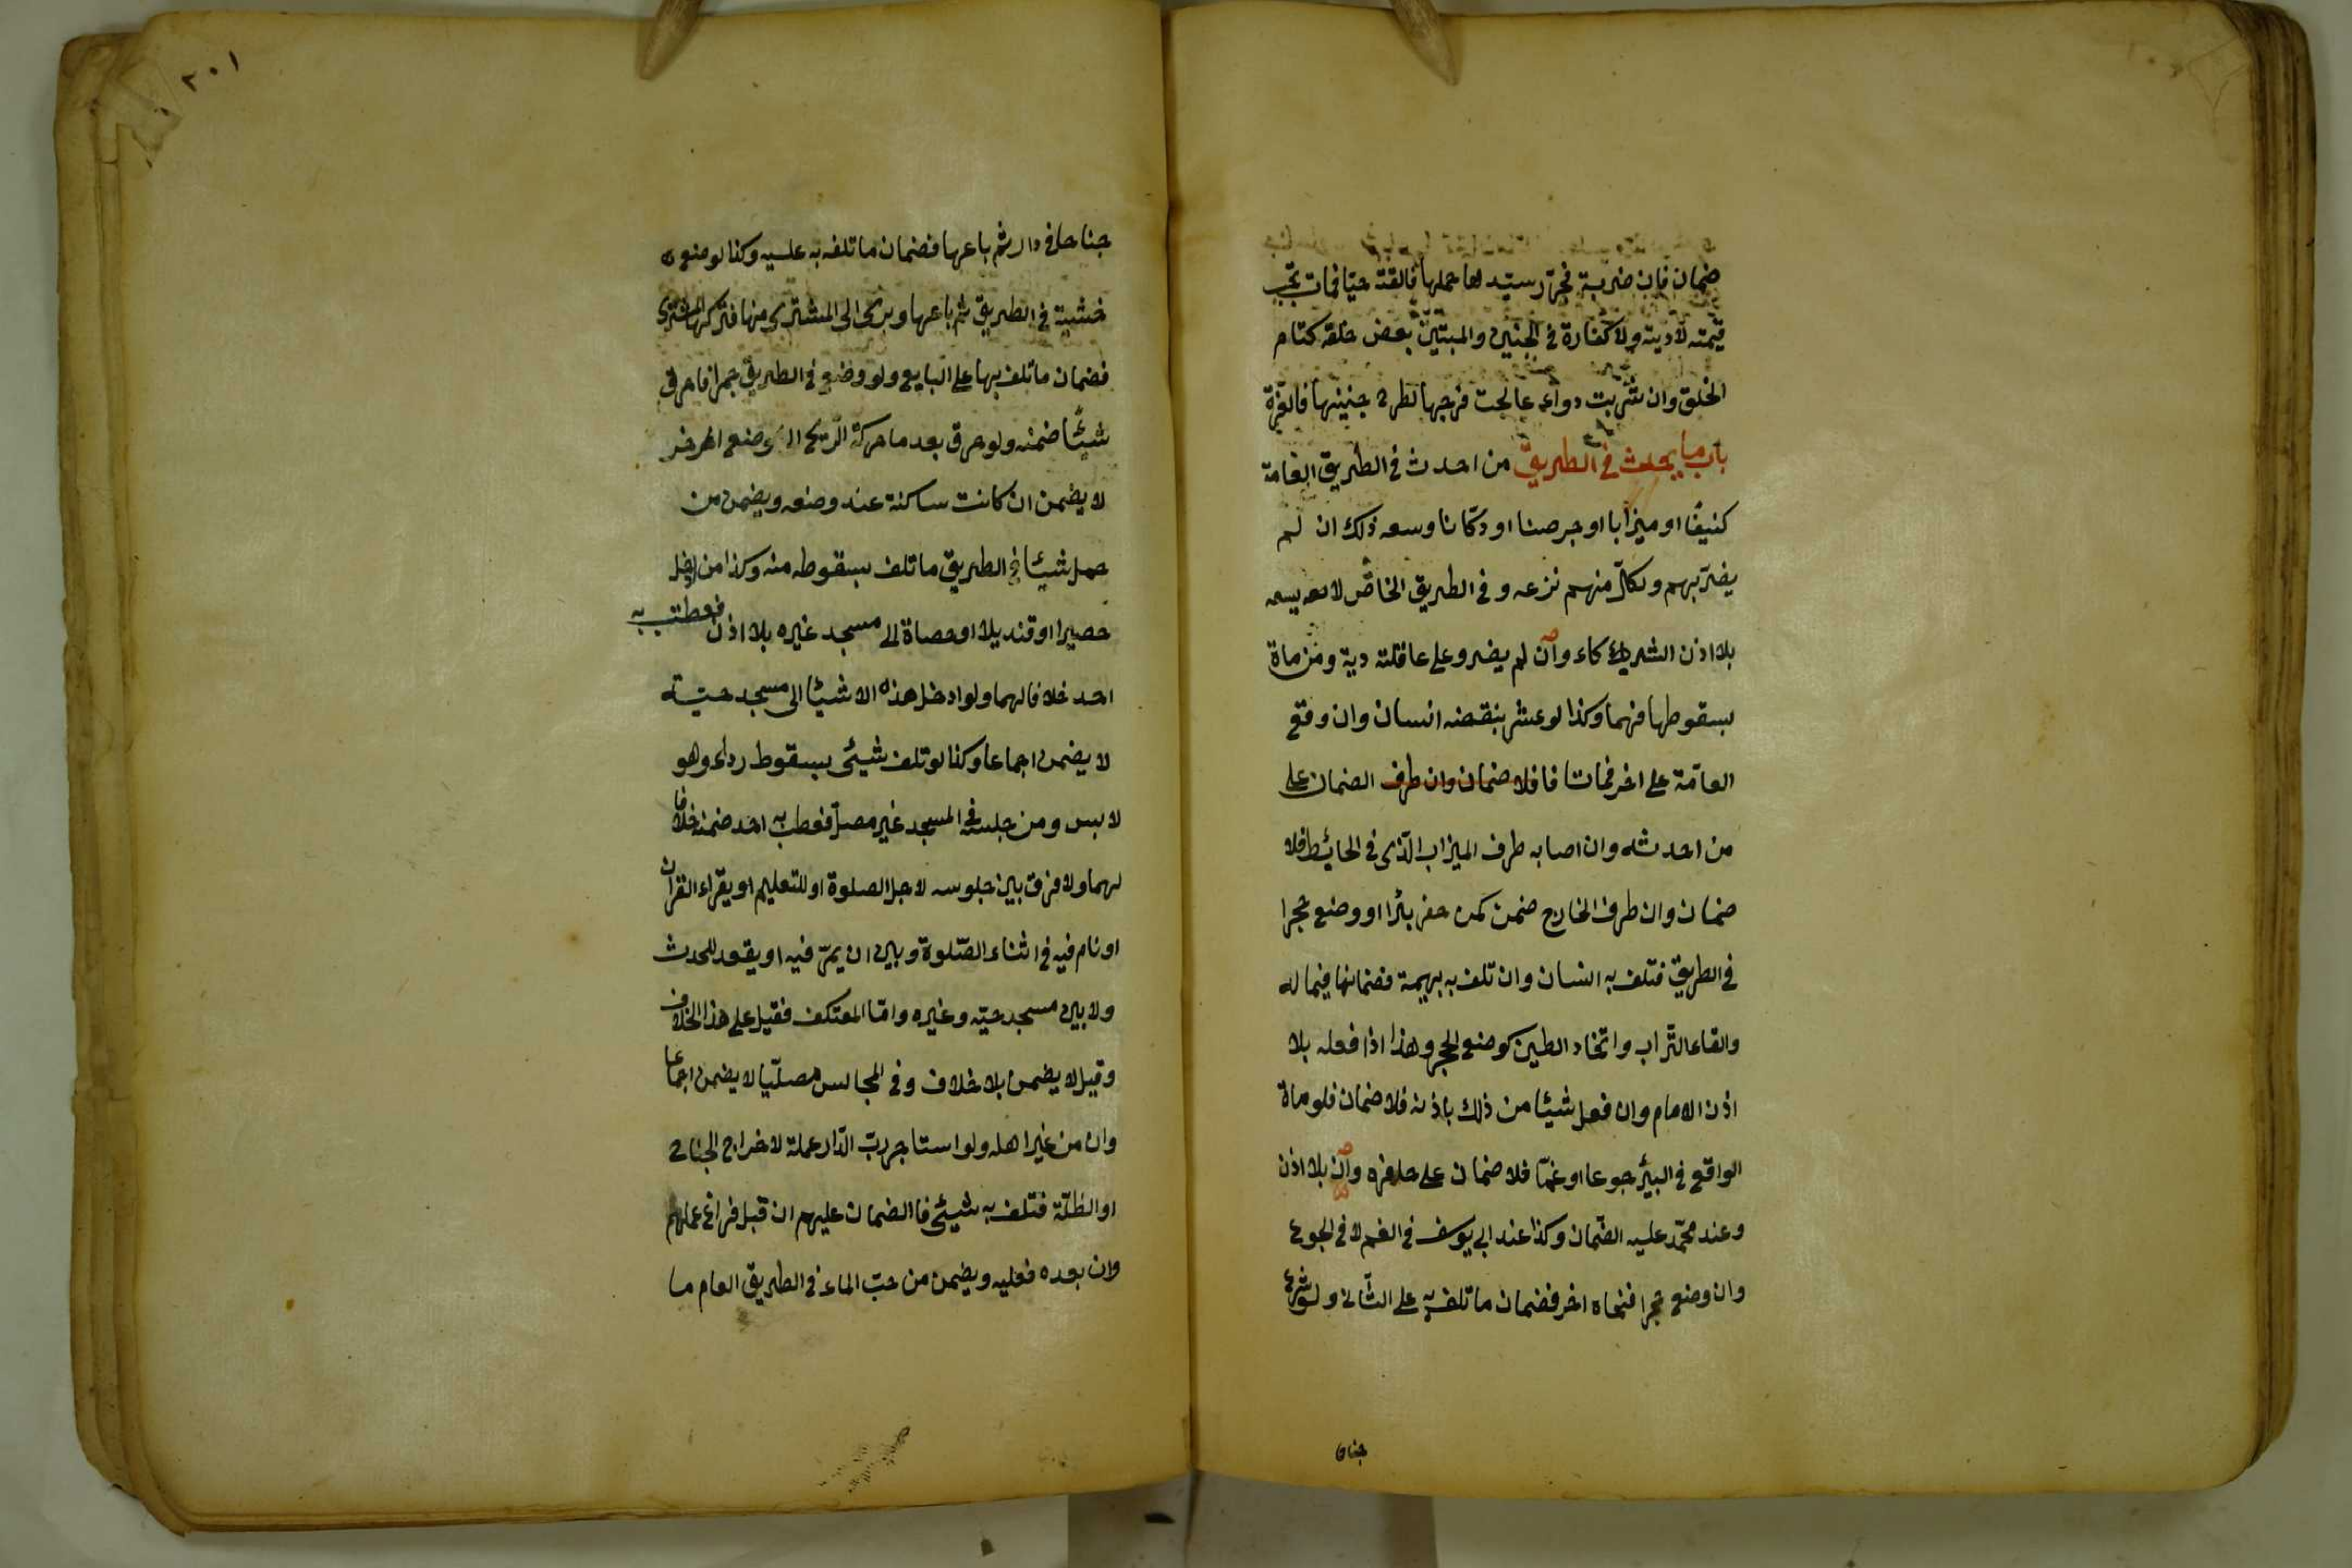 ضمان فان ضربة فحرّر سيّدها حملها فالقتة حيّا فمات تجب
قيمته لا ديته ولا كفارة في الجنين والمستبين بعض خلقه كتام
الخلق وان شربت دواء عالجت فرجها لطرح جنينها فالغرّة
باب ما يحدث في الطريق من احدث في الطريق العامة
كنيفا او ميزابا او جرصنا او دكّانا وسعه ذلك ان لم
يضرّ بهم ولكلّ منهم نزعه وفي الطريق الخاصّ لا يسعه
بلا اذن الشركاء وان لم يضر وعلى عاقلته دية من مات
بسقوطها فيهما وكذا لو عثر بنقضه انسان وان وقع
العامّة على اخر فماتا فا فلا ضمان وان طرف الضمان على
من احدثه وان اصابه طرف الميزاب الّذى في الحائط فلا
ضمان وان طرف الخارج ضمن كمن حفر بئرا او وضع حجرا
في الطريق فتلف به انسان وان تلف به بهيمة فضمانها فيماله
والقاء التّراب واتخاد الطين كوضع الحجر وهذا اذا فعله بلا
اذن الامام وان فعل شيئا من ذلك باذنه فلا ضمان فلو ماة
الواقع في البئر جوعا او غمّا فلا ضمان على حافره وان بلا اذن
وعند محمّد عليه الضّمان وكذا عند ابى يوسف في الغم لا في الجوع
وان وضع حجرا فنحاه اخر فضمان ما تلف به على الثّانى ولو شرع
جناح
٢٠١
جناحا في دار ثم باعها فضمان ما تلف به عليه وكذا لو ضع
خشبة في الطريق ثم باعها وبرى الى المشترى منها فتركها المشترى
فضمان ما تلف بها على البايع ولو وضع في الطريق جمرا فاحرق
شيئا ضمنه ولو حرق بعد ما حركة الرّيح الى موضع اخر
لا يضمن ان كانت ساكنة عند وضعه ويضمن من
حمل شيئا في الطريق ما تلف بسقوطه منه وكذا من ادخل
حصيرا او قنديلا او حصاة الى مسجد غيره بلا اذن فعطب به
احد خلافا لهما ولو ادخل هذه الاشيئا الى مسجد حيّه
لا يضمن اجماعا وكذا لو تلف شيئى بسقوط رداء وهو
لابس ومن جلس في المسجد غير مصلّ فعطب به احد ضمنه خلافا
لهما ولا فرق بين جلوسه لاجل الصلوة او للتعليم او يقراء القرآن
او نام فيه في اثناء الصّلوة وبين ان يمرّ فيه او يقعد للحدث
ولا بين مسجد حيّه وغيره وامّا المعتكف فقيل على هذا الخلاف
وقيل لا يضمن بلا خلاف وفي الجالس مصلّيا لا يضمن اجماعا
وان من غير اهله ولو استاجر ربّ الدّار عملة لاخراج الجناح
او الظلّة فتلف به شيئى فالضمان عليهم ان قبل فراغ عملهم
وان بعده فعليه ويضمن من صبّ الماء في الطريق العام ما